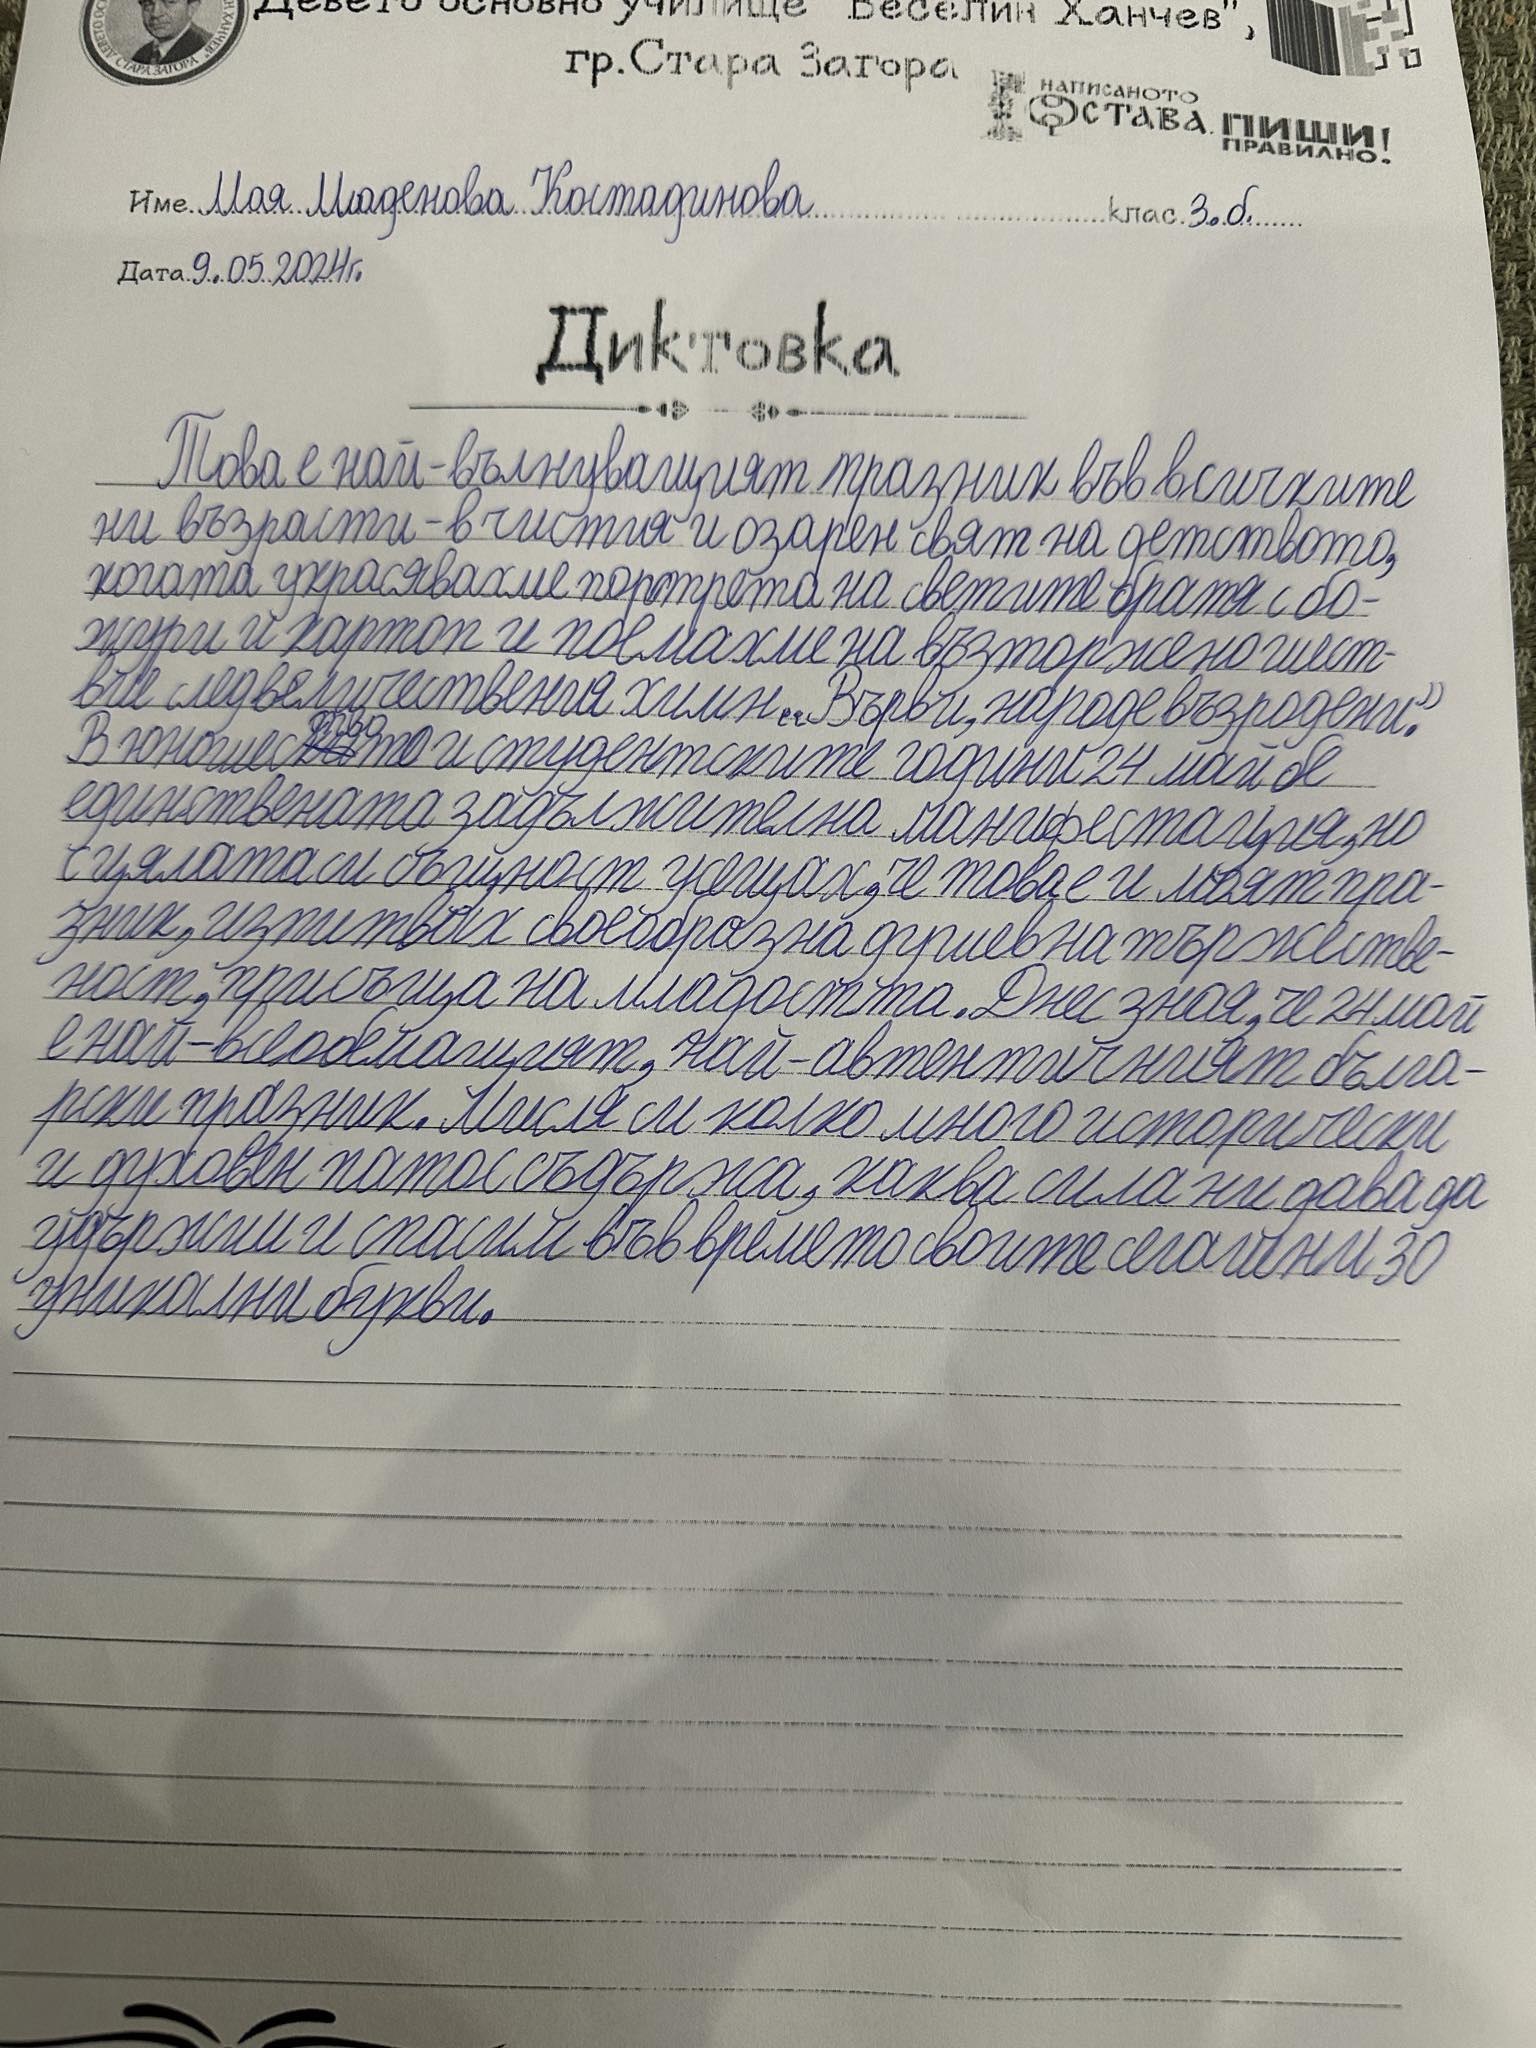 Девето основно училище "Веселин Ханчев",
гр. Стара Загора
СТАРА ЗАГОРА
НАПИСАНОТО
ОСТАВА. ПИШИ
ПРАВИЛНО!
Име Мая Младенова Костадинова клас 3. б.
Дата 9.05.2024г.
Диктовка
Това е най-вълнуващият празник във всичките
ни възрасти - в чистия и озарен свят на детството,
когато украсявахме портрета на светите братя с бо-
жури и картон и поемахме на възторжено шест-
вие след величествения химн „Върви, народе възродени."
В юношеството и студентските години 24 май бе
единствената задължителна манифестация, но
с цялата си същност усещах, че това е и моят пра-
зник, изпитвах своеобразна душевна тържестве-
ност, присъща на младостта. Днес зная, че 24 май
е най-всеобемащият, най-автентичният бълга-
рски празник. Мисля си колко много исторически
и духовен патос съдържа, каква сила ни дава да
удържим и спасим във времето своите сегашни 30
уникални букви.